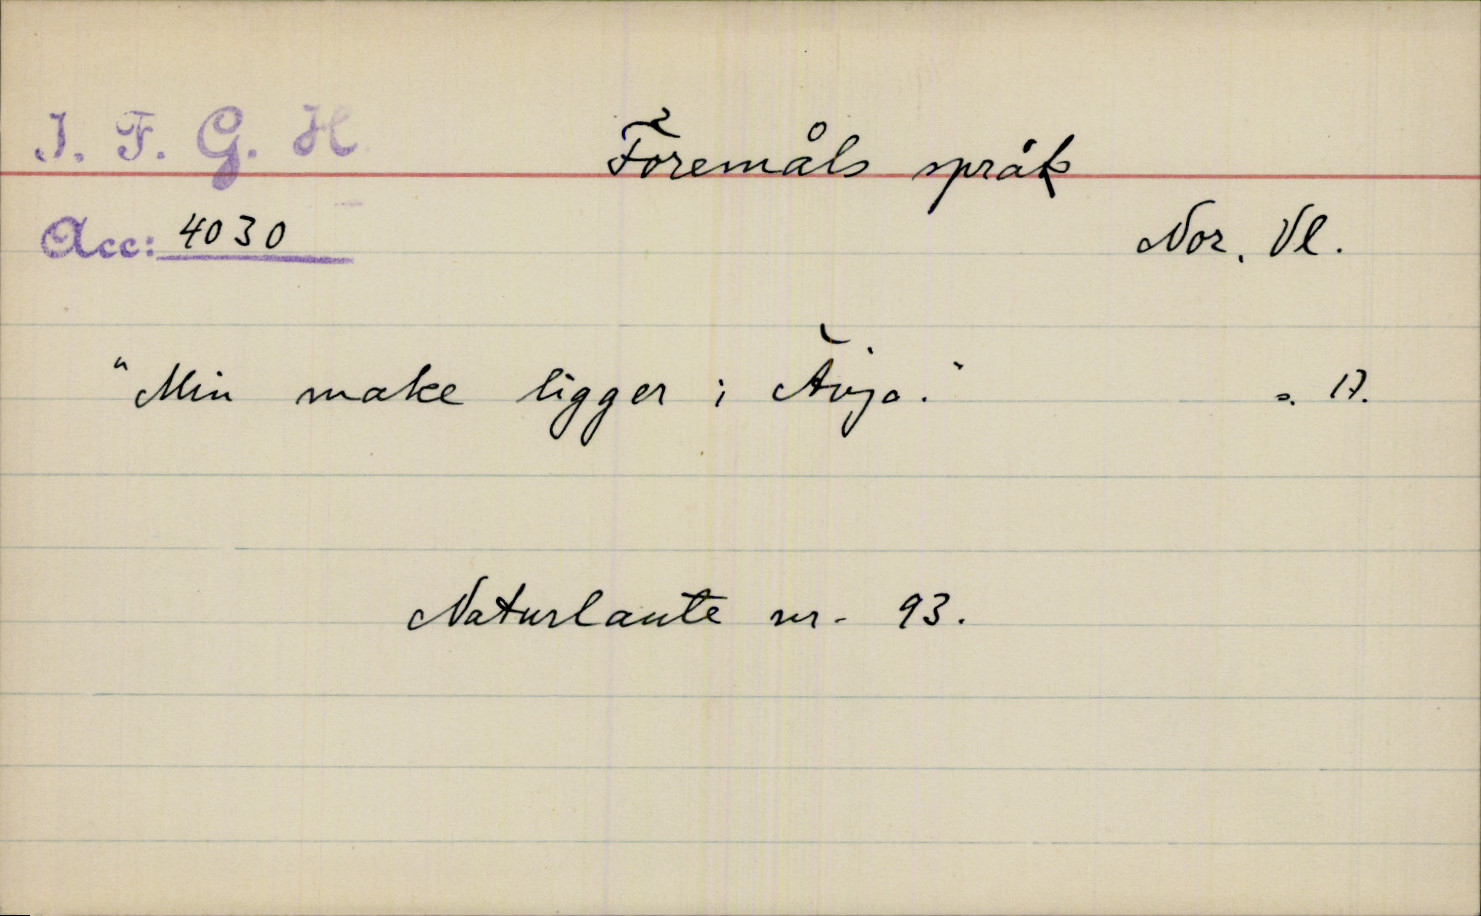 I. F. G. H
Föremåls språk
Acc: 4030
Nor. Vl.
"Min make ligger i Ävja." s. 17.
Naturlaute nr. 93.